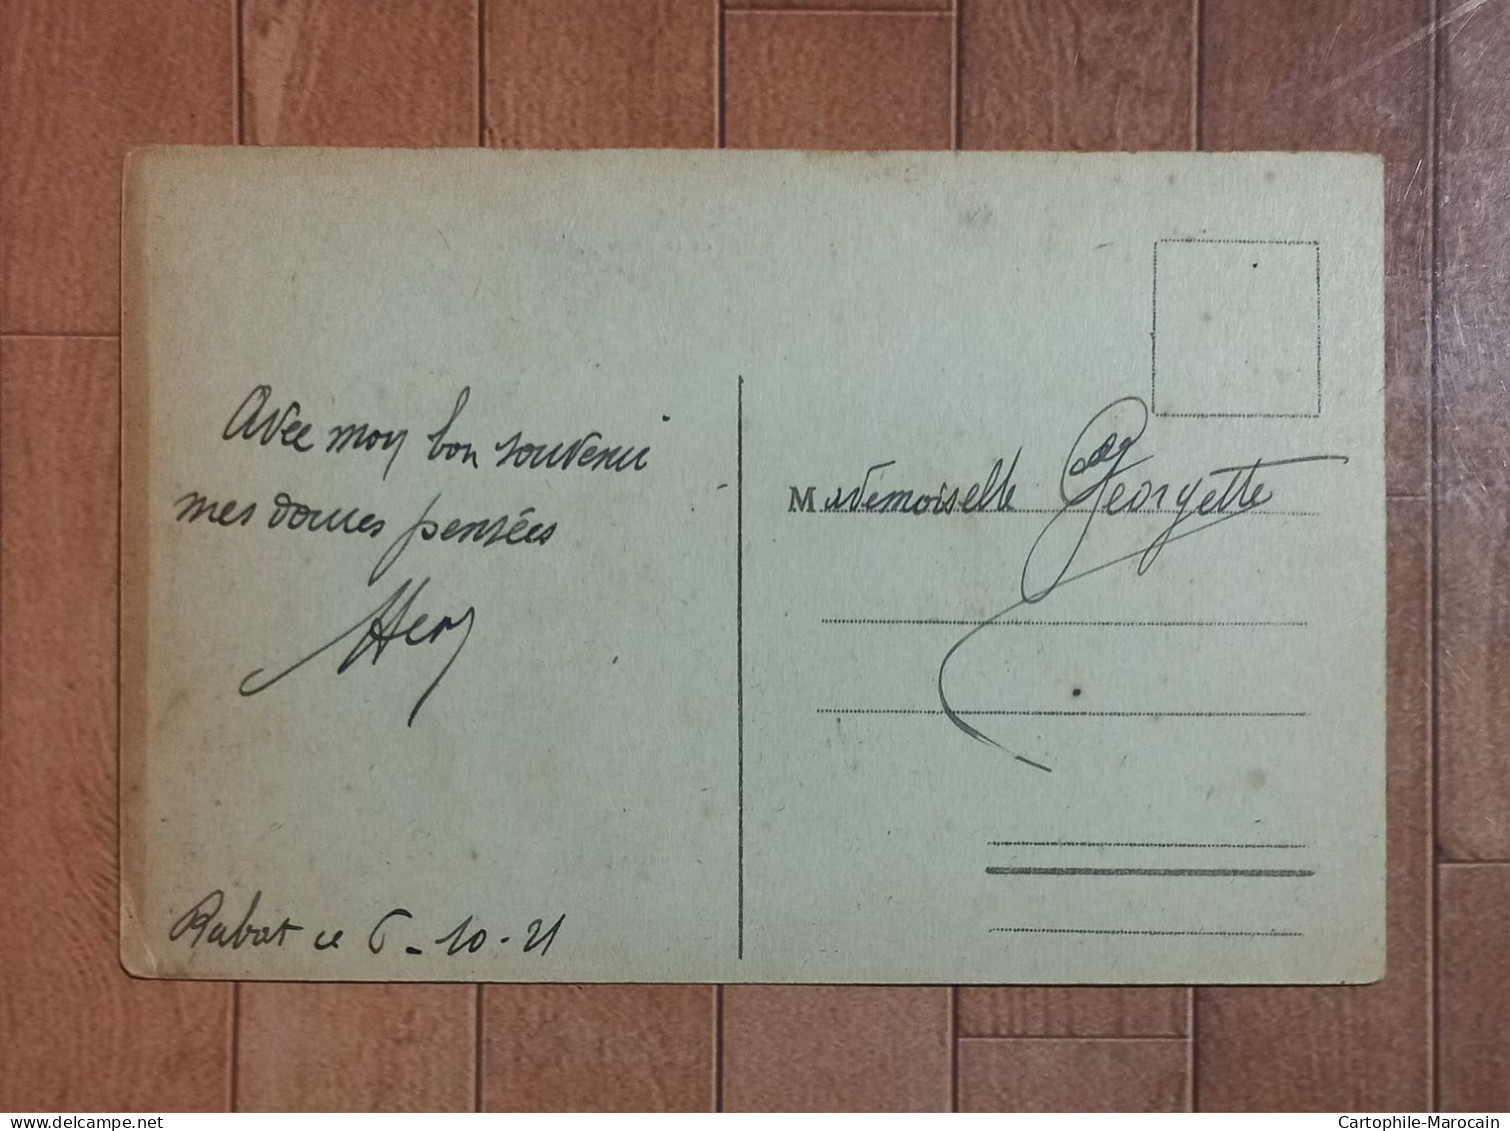 Avec mon bon souvenir
mes douces pensées
Rabat ce 6-10-21
Mademoiselle Georgette
delcampe.net
Cartophile-Marocain